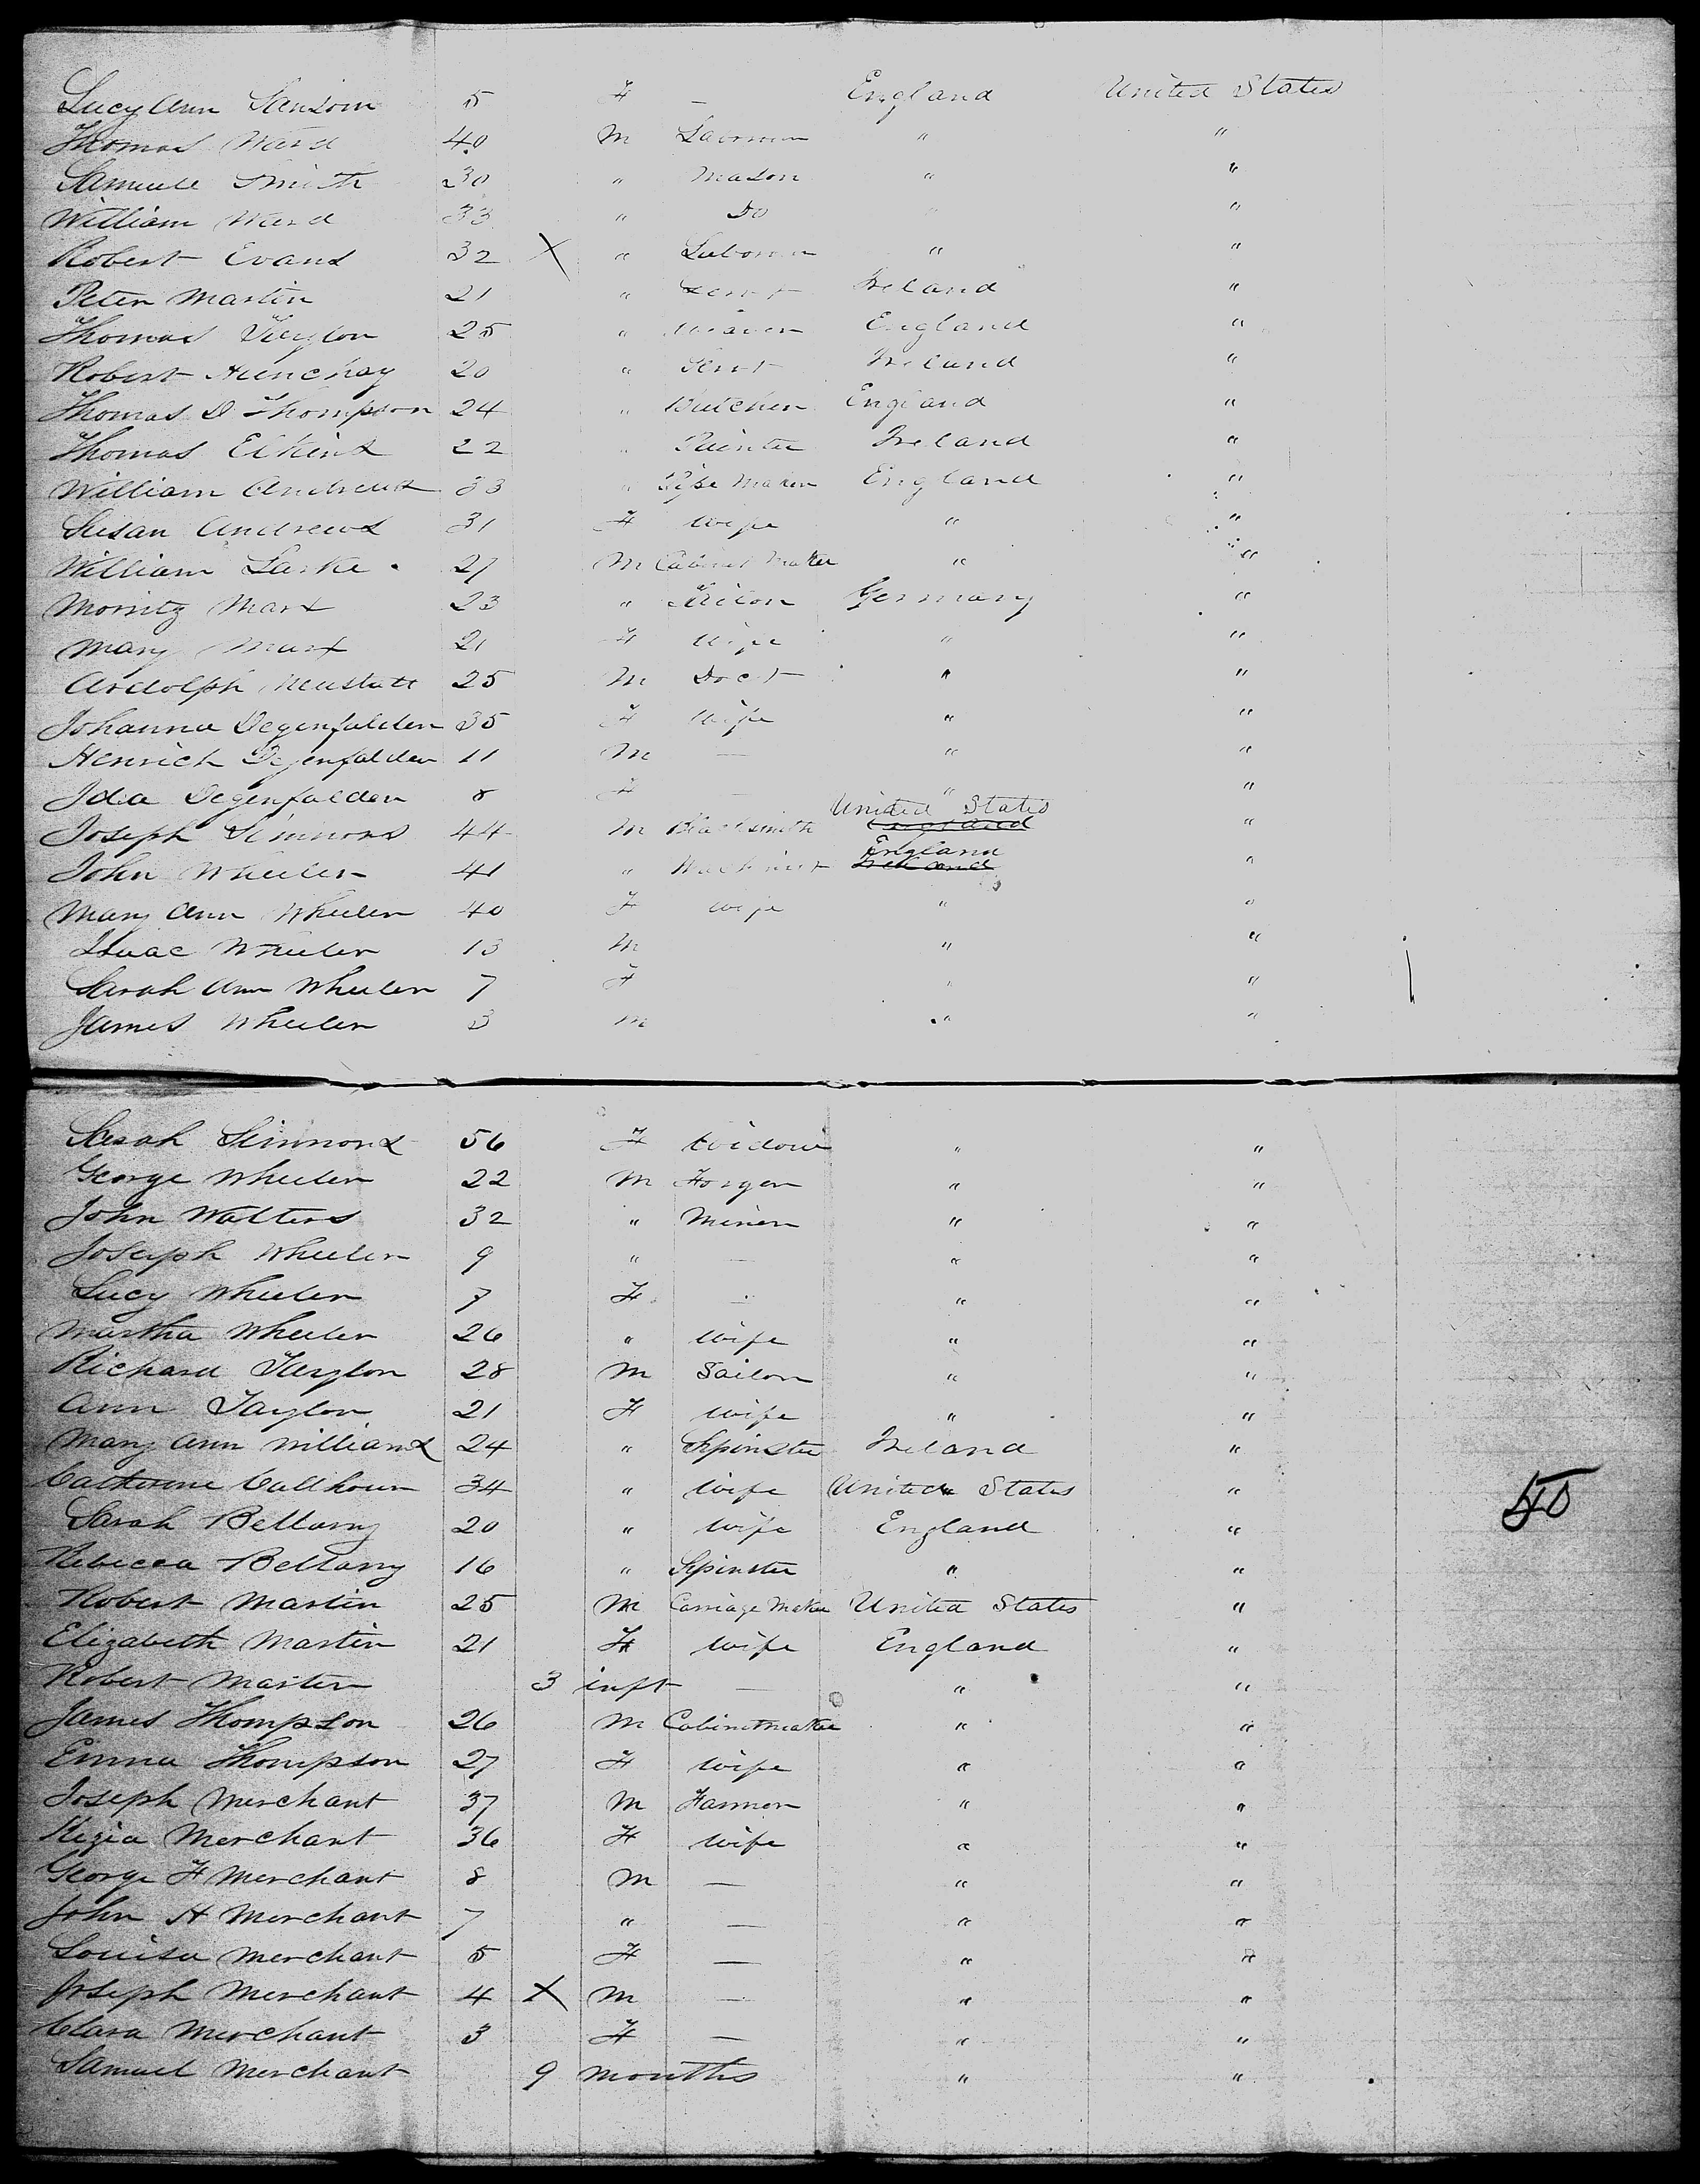 Lucy Ann Sansom 5 F — England United States
Thomas Ward 40 M Laborer " "
Samuel Smith 30 " Mason " "
William Ward 33 " Do " "
Robert Evans 32 X " Laborer " "
Peter Martin 21 " Ireland "
Thomas Taylor 25 " Weaver England "
Robert 20 " Ireland "
Thomas D Thompson 24 " Butcher England "
Thomas Elkins 22 " Painter Ireland "
William Andrews 33 " Pipe Maker England "
Susan Andrews 31 F Wife " "
William 27 M Cabinet Maker " "
Morritz Marx 23 " Germany "
Mary Marx 21 F Wife " "
Ardolph Neustatt 25 M Doct " "
Johanna Degenfalden 35 F Wife " "
Henrich Degenfalden 11 M — " "
Ida Degenfalden 8 F — " "
United States
Joseph Simmons 44 M Blacksmith England "
England
John Wheeler 41 " Machinist Ireland "
Mary Ann Wheeler 40 F Wife " "
Isaac Wheeler 13 M " "
Sarah Ann Wheeler 7 F " "
James Wheeler 3 M " "
Sarah Simmons 56 F Widow " "
George Wheeler 22 M Forger " "
John Walters 32 " Miner " "
Joseph Wheeler 9 " — " "
Lucy Wheeler 7 F — " "
Martha Wheeler 26 " Wife " "
Richard Taylor 28 M Sailor " "
Ann Taylor 21 F Wife " "
Mary Ann Williams 24 " Spinster Ireland "
Catherine Callhoun 34 " Wife United States "
Sarah Bellamy 20 " Wife England "
Rebecca Bellamy 16 " Spinster " "
Robert Martin 25 M Carriage Maker United States "
Elizabeth Martin 21 F Wife England "
Robert Martin 3 inft — " "
James Thompson 26 M Cabinetmaker " "
Emma Thompson 27 F Wife " "
Joseph Merchant 37 M Farmer " "
Kezia Merchant 36 F Wife " "
George F Merchant 8 M — " "
John H Merchant 7 " — " "
Louisa Merchant 5 F — " "
Joseph Merchant 4 X M — " "
Clara Merchant 3 F — " "
Samuel Merchant 9 months " "